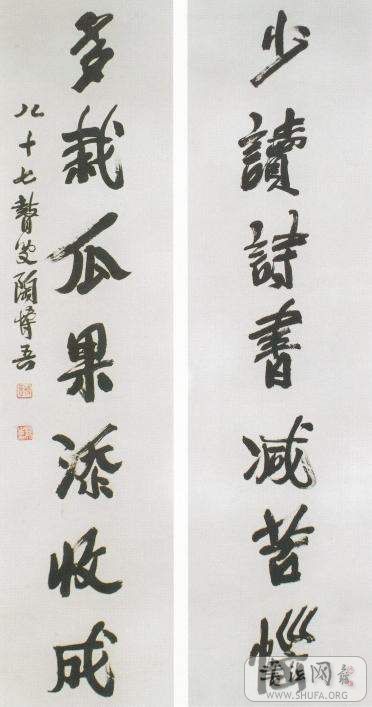 少讀詩書减苦惱
多栽瓜果添收成
八十七瞽叟陶博吾
书法网
WWW.SHUFA.ORG